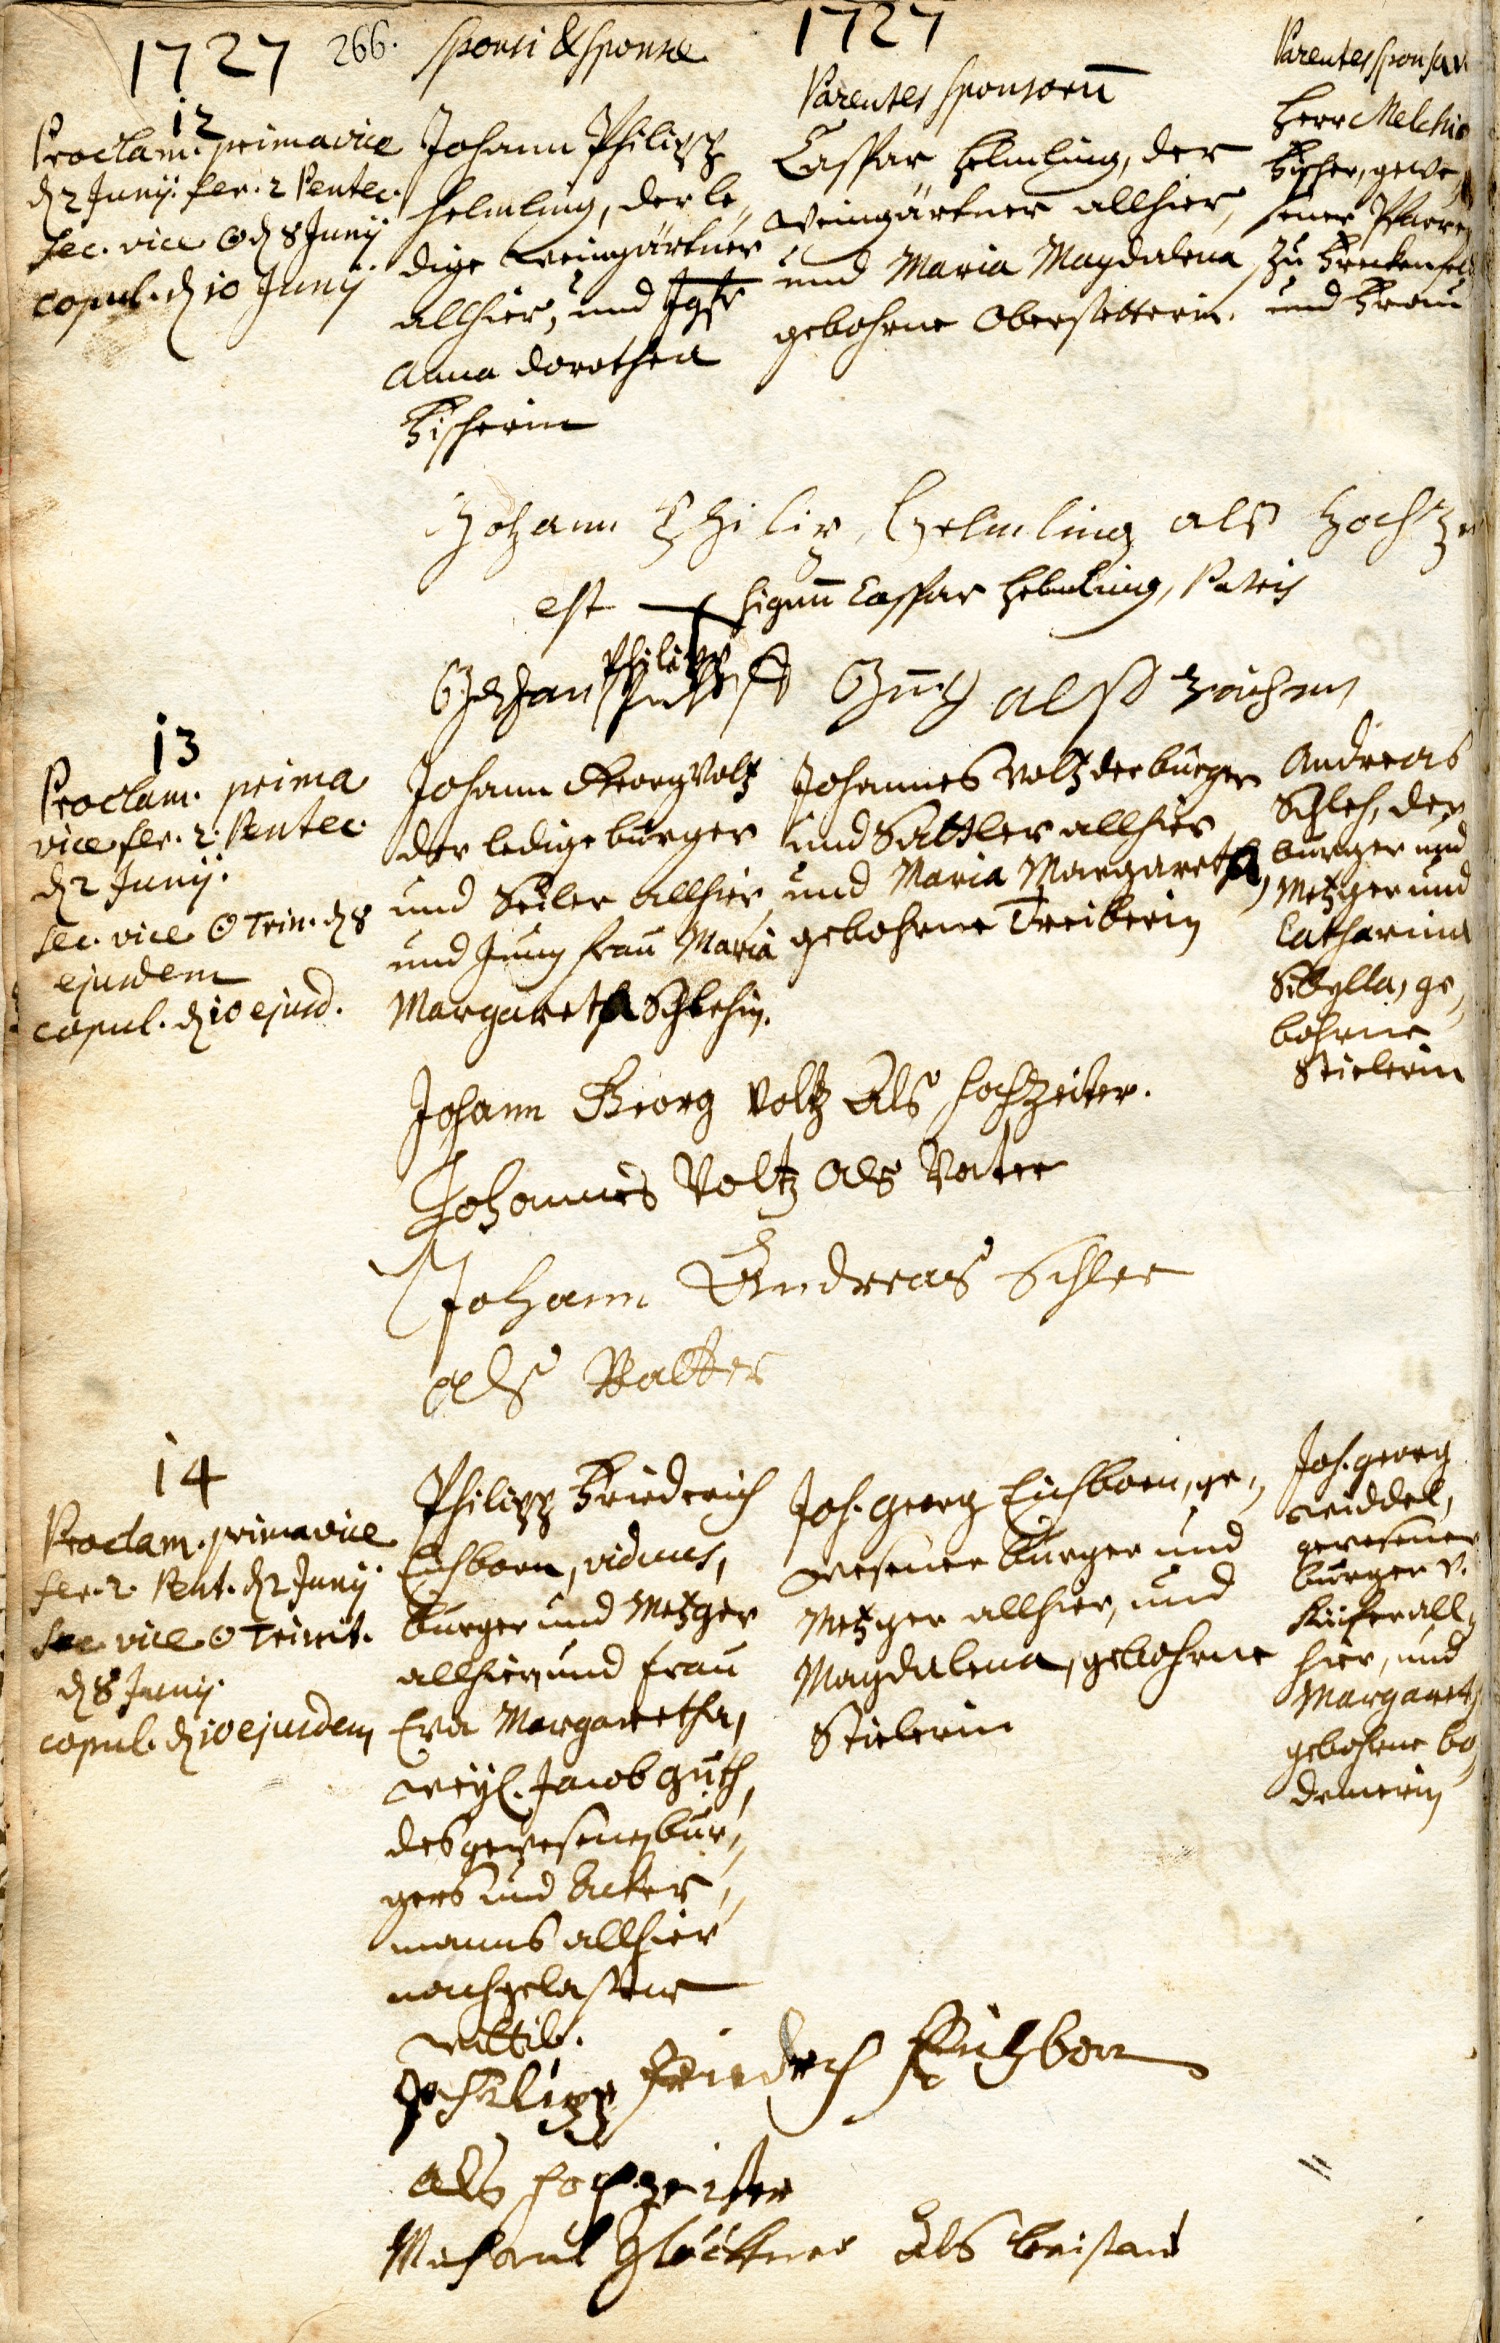 1727 266. Sponsi & Sponsae 1727
Parentes Sponsorū
Parentes Sponsar
12
Proclam. prima vice
d. 2 Junij. fer. 2 Pentec.
sec. vice ☉ d. 8 Junij
copul. d. 10 Junij
Johann Philipp
Helmling, der le„
dige Weingärtner
allhier, und Jgfr
Anna Dorothea
Fischerin
Caspar Helmling, der
Weingärtner allhier,
und Maria Magdalena
gebohrne Oberstetterin.
Herr Melchio
Fischer, gewe„
sener Pfarre
zu Breckenfeld
und Frau
Johann Philip Helmling als Hoch
est signū Caspar Helmling, Patris
Philipp
alß
13
Proclam. prima
vice fer. 2. Pentec.
d. 2 Junij.
sec. vice ☉ Trin. d. 8
ejusdem
copul. d. 10 ejusd.
Johann Georg Voltz
der ledige burger
und Seiler allhier
und Jungfrau Maria
Margaretha Schlehin.
Johannes Voltz der burger
und Sattler allhier
und Maria Margaretha,
gebohrne Treiberin
Andreas
Schleh, der
burger und
Metzger und
Catharina
Sibylla, ge„
bohrne
Stielerin
Johann Georg Voltz Als Hochzeiter.
Johannes Voltz als Vatter
Johann Andreas Schlee
als Vatter
14
Proclam. prima vice
fer. 2. Pent. d. 2 Junij
sec. vice ☉ Trinit.
d. 8 Junij.
copul. d. 10 ejusdem
Philipp Friederich
Eichborn, viduus,
burger und Metzger
allhier, und Frau
Eva Margaretha,
weyl. Jacob Guth,
des gewesenen bur„
gers und Acker„
manns allhier
nachgelassene
wittib.
Joh. Georg Eichborn, ge„
wesener burger und
Metzger allhier, und
Magdalena, gebohrne
Stielerin
Joh. Georg
Riddel,
gewesener
burger v.
Küfer all„
hier, und
Margareth
gebohrne bo„
demerin
Philipp Friedrich Eichborn
als Hochzeiter
Michael Glöckner als beistand